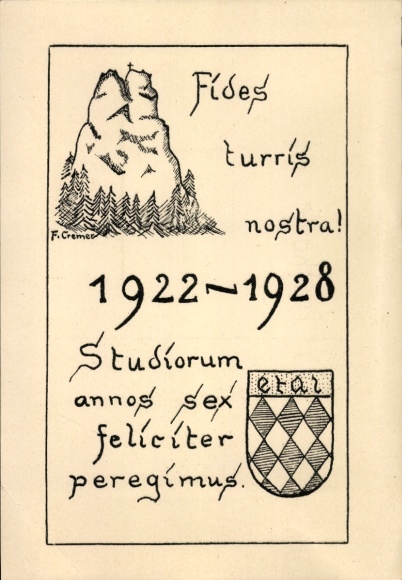 Fides
turris
nostra!
F. Cremer
1922-1928
Studiorum
annos sex
feliciter
peregimus.
etal